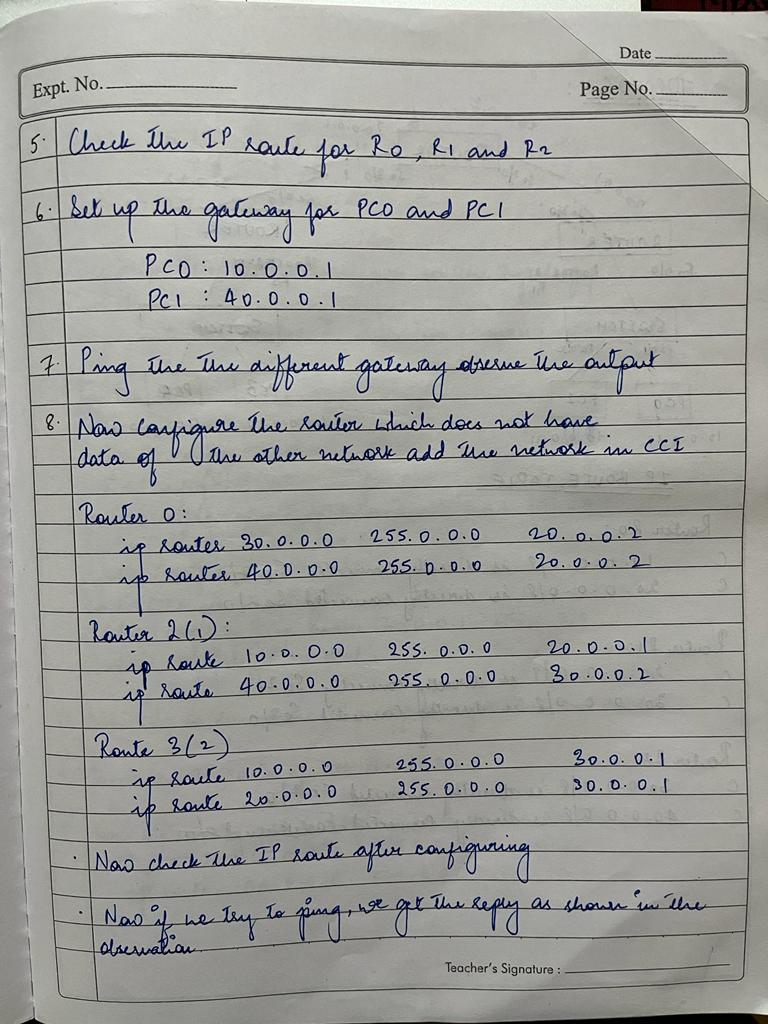 Date
Expt. No.
Page No.
5. Check the IP route for R0, R1 and R2
6. Set up the gateway for PC0 and PC1
PC0 : 10.0.0.1
PC1 : 40.0.0.1
7. Ping the the different gateway observe the output
8. Now configure the router which does not have
data of the other network add the network in CCI
Router 0:
ip router 30.0.0.0 255.0.0.0 20.0.0.2
ip router 40.0.0.0 255.0.0.0 20.0.0.2
Router 2(1):
ip route 10.0.0.0 255.0.0.0 20.0.0.1
ip route 40.0.0.0 255.0.0.0 30.0.0.2
Route 3(2)
ip route 10.0.0.0 255.0.0.0 30.0.0.1
ip route 20.0.0.0 255.0.0.0 30.0.0.1
· Now check the IP route after configuring
· Now if we try to ping, we get the reply as shown in the
observation
Teacher's Signature :